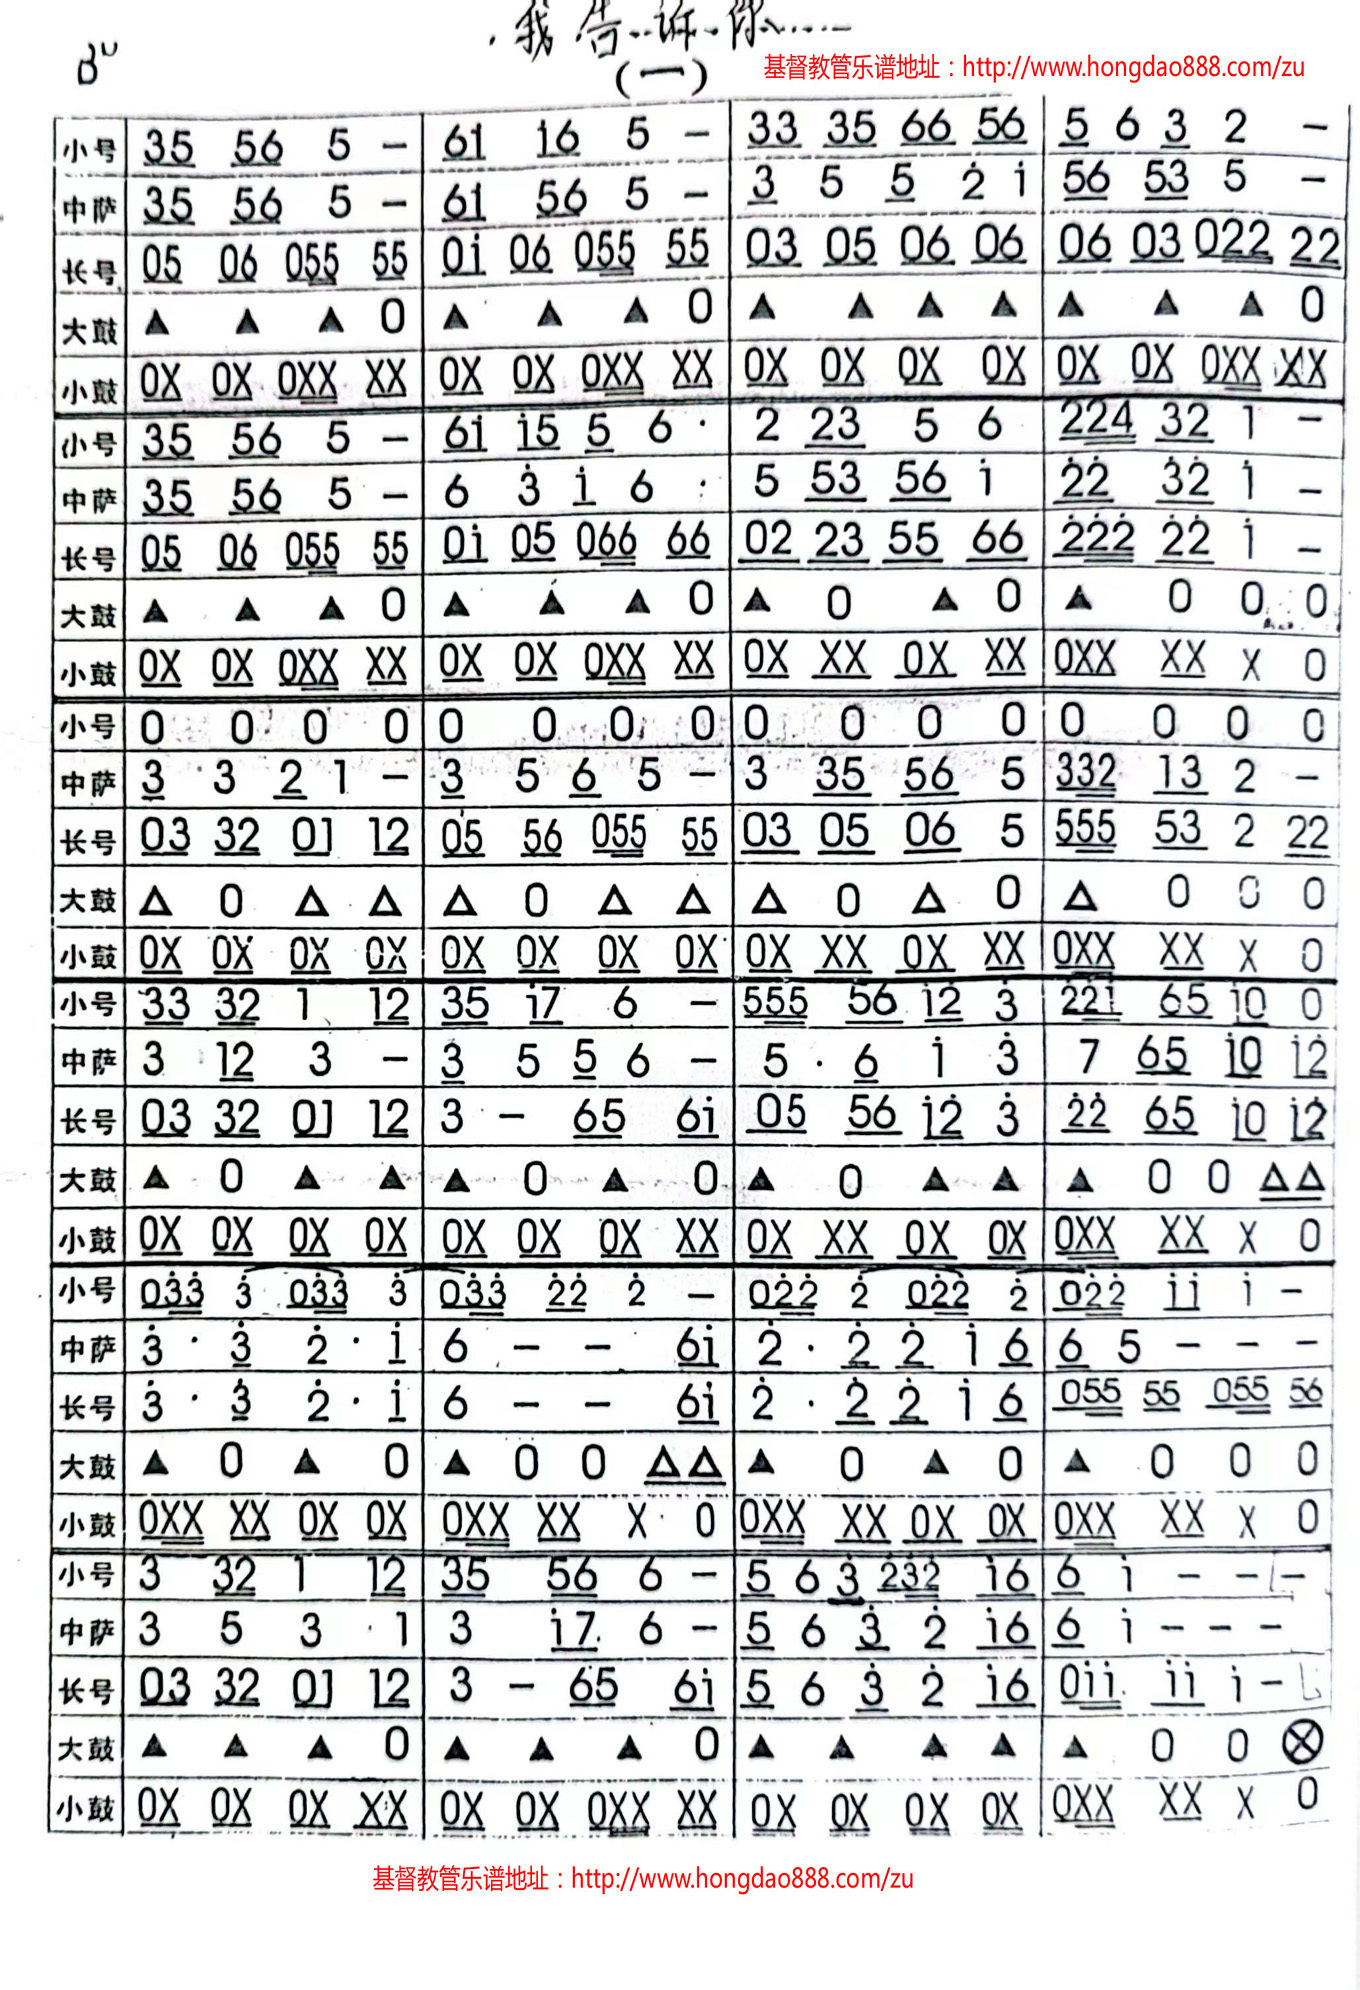 我告诉你……
Bᵇ
(一)
基督教管乐谱地址：http://www.hongdao888.com/zu
小号 35 56 5 – 61̇ 1̇6 5 – 33 35 66 56 5 6 3 2 –
中萨 35 56 5 – 61̇ 56 5 – 3 5 5 2̇ 1̇ 56 53 5 –
长号 05 06 055 55 01̇ 06 055 55 03 05 06 06 06 03 022 22
大鼓 ▲ ▲ ▲ 0 ▲ ▲ ▲ 0 ▲ ▲ ▲ ▲ ▲ ▲ ▲ 0
小鼓 0X 0X 0XX XX 0X 0X 0XX XX 0X 0X 0X 0X 0X 0X 0XX XX
小号 35 56 5 – 61̇ 1̇5 5 6 · 2 23 5 6 224 32 1 –
中萨 35 56 5 – 6 3̇ 1̇ 6 · 5 53 56 1̇ 2̇2̇ 3̇2̇ 1̇ –
长号 05 06 055 55 01̇ 05 066 66 02 23 55 66 2̇2̇2̇ 2̇2̇ 1̇ –
大鼓 ▲ ▲ ▲ 0 ▲ ▲ ▲ 0 ▲ 0 ▲ 0 ▲ 0 0 0
小鼓 0X 0X 0XX XX 0X 0X 0XX XX 0X XX 0X XX 0XX XX X 0
小号 0 0 0 0 0 0 0 0 0 0 0 0 0 0 0 0
中萨 3 3 2 1 – 3 5 6 5 – 3 35 56 5 332 13 2 –
长号 03 32 01 12 05 56 055 55 03 05 06 5 555 53 2 22
大鼓 △ 0 △ △ △ 0 △ △ △ 0 △ 0 △ 0 0 0
小鼓 0X 0X 0X 0X 0X 0X 0X 0X 0X XX 0X XX 0XX XX X 0
小号 33 32 1 12 35 1̇7 6 – 555 56 1̇2̇ 3̇ 2̇2̇1̇ 65 1̇0 0
中萨 3 12 3 – 3 5 5 6 – 5 · 6 1̇ 3̇ 7 65 1̇0 1̇2̇
长号 03 32 01 12 3 – 65 61̇ 05 56 1̇2̇ 3̇ 2̇2̇ 65 1̇0 1̇2̇
大鼓 ▲ 0 ▲ ▲ ▲ 0 ▲ 0 ▲ 0 ▲ ▲ ▲ 0 0 △△
小鼓 0X 0X 0X 0X 0X 0X 0X XX 0X XX 0X 0X 0XX XX X 0
小号 03̇3̇ 3̇ 03̇3̇ 3̇ 03̇3̇ 2̇2̇ 2̇ – 02̇2̇ 2̇ 02̇2̇ 2̇ 02̇2̇ 1̇1̇ 1̇ –
中萨 3̇ · 3̇ 2̇ · 1̇ 6 – – 61̇ 2̇ · 2̇ 2̇ 1̇ 6 6 5 – – –
长号 3̇ · 3̇ 2̇ · 1̇ 6 – – 61̇ 2̇ · 2̇ 2̇ 1̇ 6 055 55 055 56
大鼓 ▲ 0 ▲ 0 ▲ 0 0 △△ ▲ 0 ▲ 0 ▲ 0 0 0
小鼓 0XX XX 0X 0X 0XX XX X 0 0XX XX 0X 0X 0XX XX X 0
小号 3 32 1 12 35 56 6 – 5 6 3̇ 2̇3̇2̇ 1̇6 6 1̇ – – –
中萨 3 5 3 1 3 1̇7 6 – 5 6 3̇ 2̇ 1̇6 6 1̇ – – –
长号 03 32 01 12 3 – 65 61̇ 5 6 3̇ 2̇ 1̇6 01̇1̇ 1̇1̇ 1̇ –
大鼓 ▲ ▲ ▲ 0 ▲ ▲ ▲ 0 ▲ ▲ ▲ ▲ ▲ 0 0 ⊗
小鼓 0X 0X 0X XX 0X 0X 0XX XX 0X 0X 0X 0X 0XX XX X 0
基督教管乐谱地址：http://www.hongdao888.com/zu